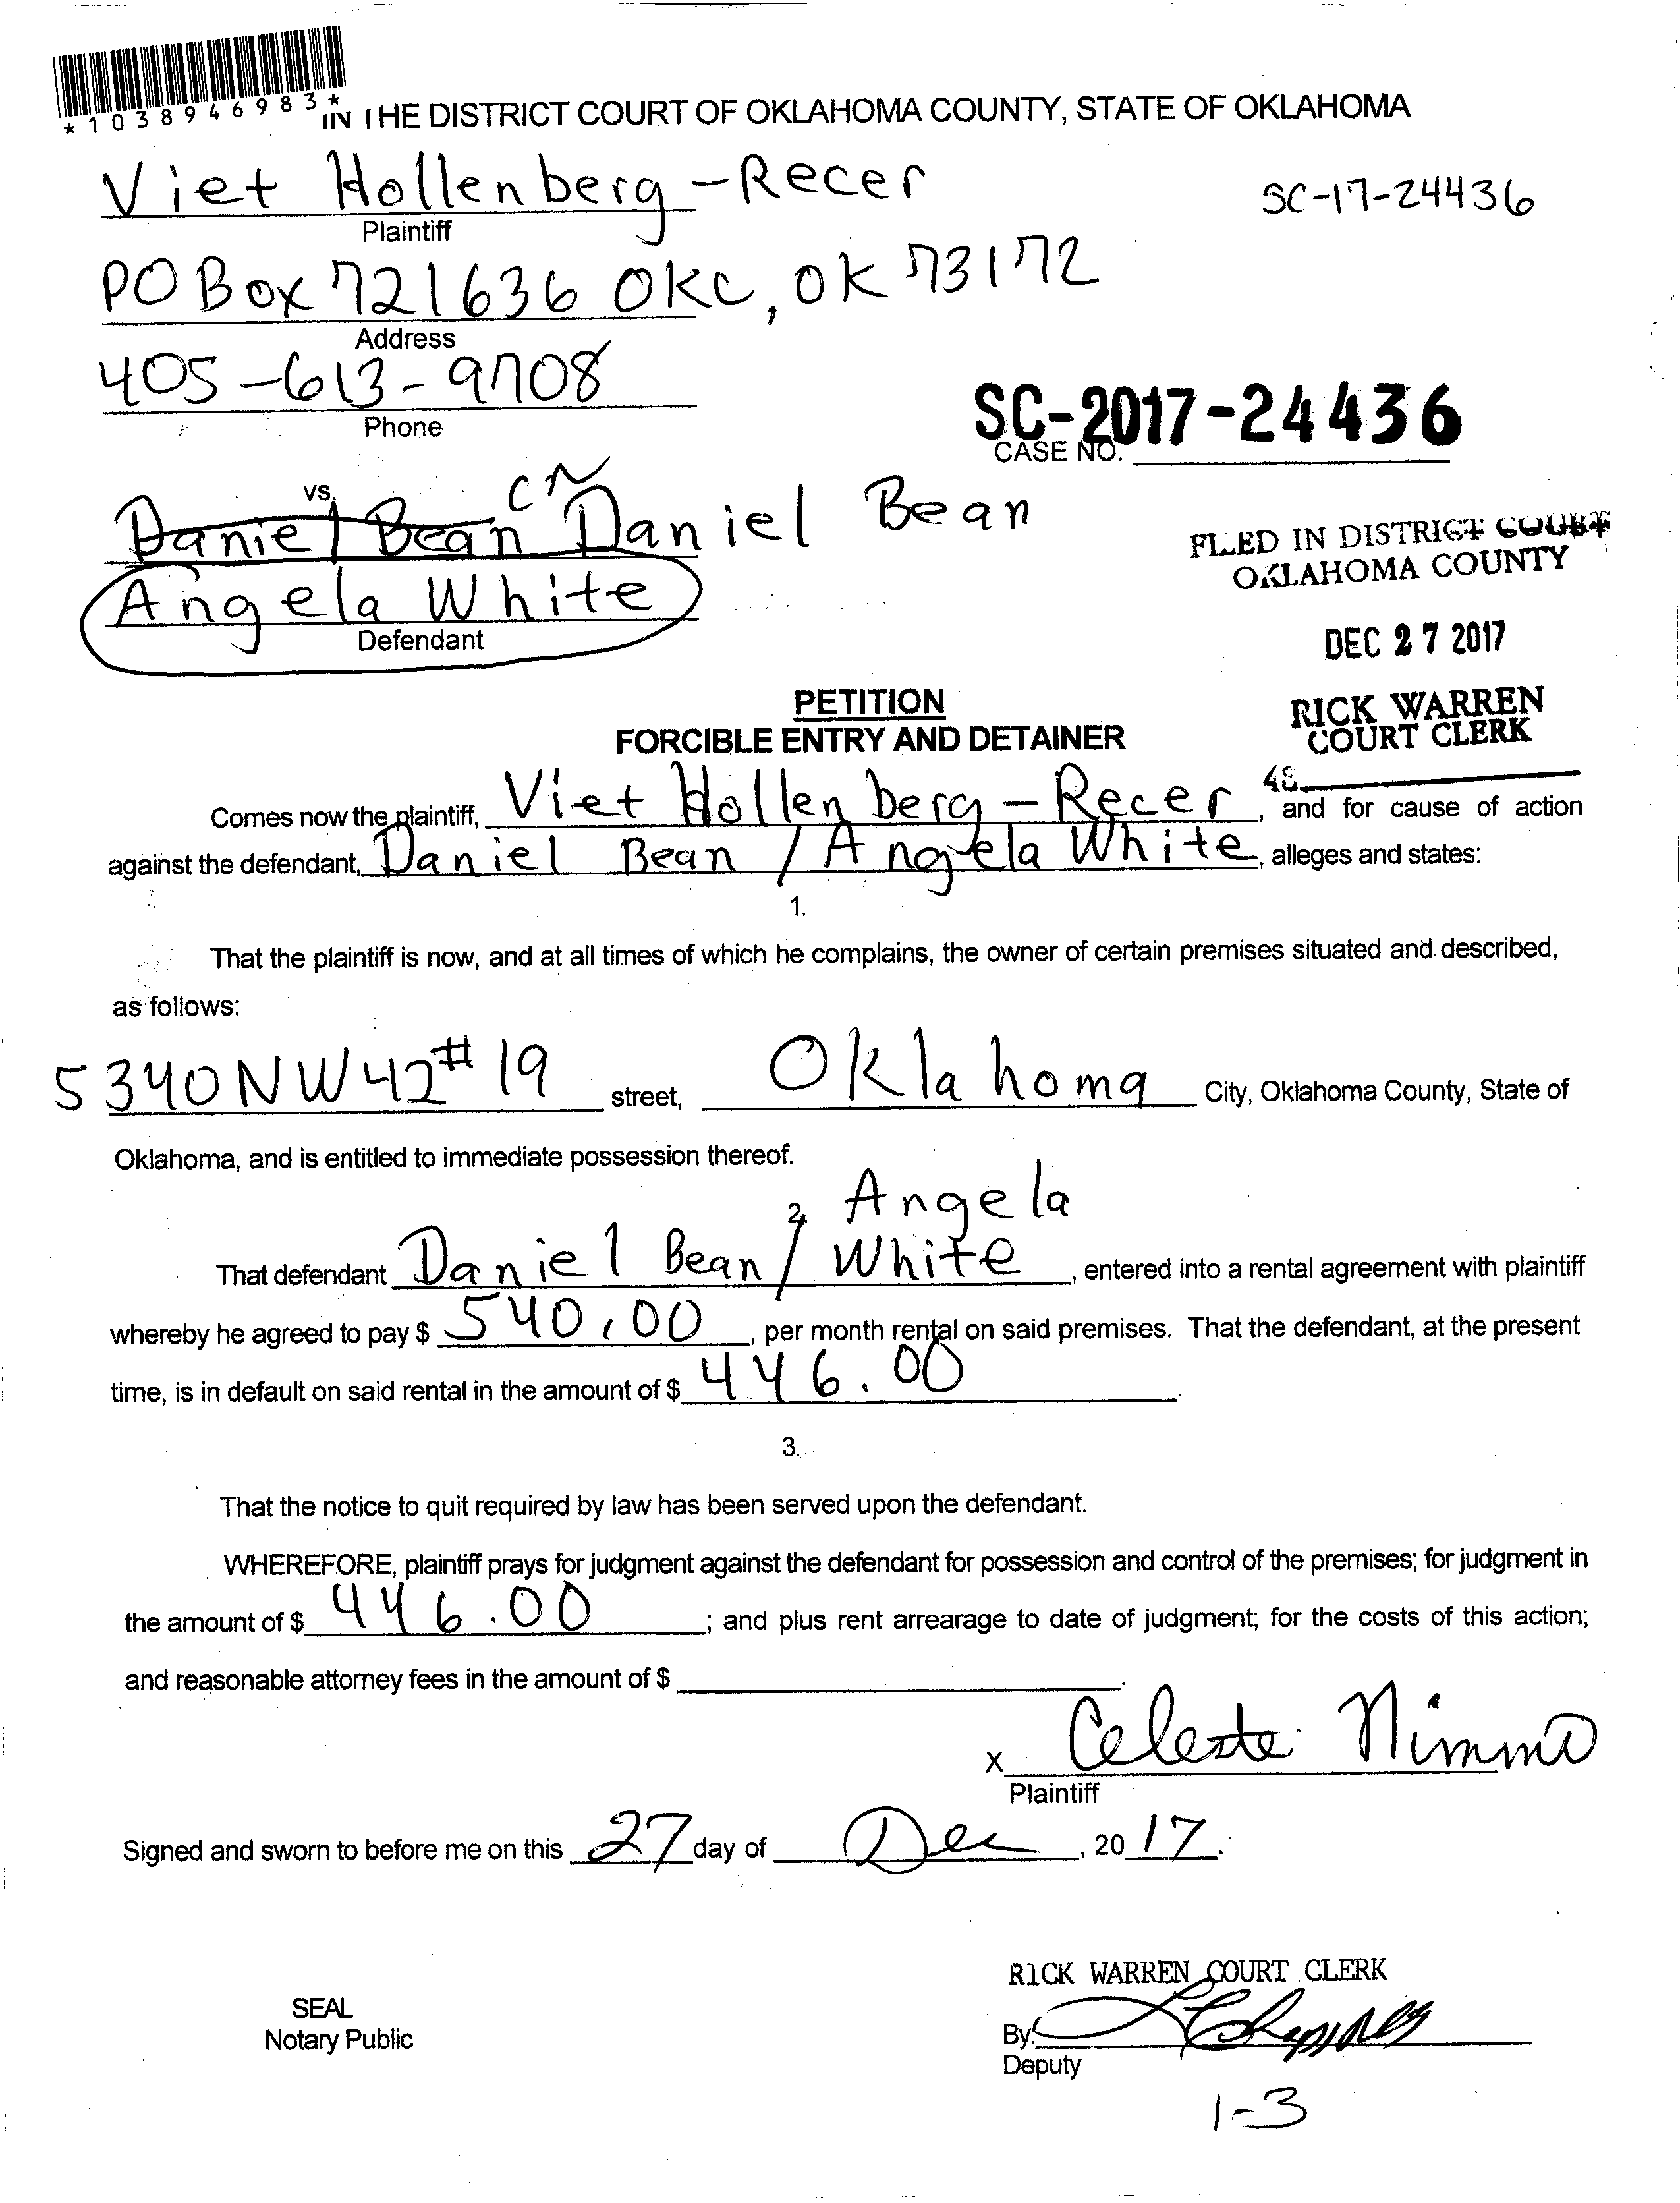 *1038946983*
IN THE DISTRICT COURT OF OKLAHOMA COUNTY, STATE OF OKLAHOMA
Viet Hollenberg-Recer
SC-17-24436
Plaintiff
PO Box 721636 OKC, OK 73172
Address
405-613-9708
Phone
SC-2017-24436
CASE NO.
vs.
CN
Daniel Bean Daniel Bean
Angela White
Defendant
FILED IN DISTRICT COURT
OKLAHOMA COUNTY
DEC 27 2017
RICK WARREN
COURT CLERK
PETITION
FORCIBLE ENTRY AND DETAINER
Comes now the plaintiff, Viet Hollenberg-Recer, and for cause of action
against the defendant, Daniel Bean / Angela White, alleges and states:
1.
That the plaintiff is now, and at all times of which he complains, the owner of certain premises situated and described,
as follows:
5340 NW 42 #19 street, Oklahoma City, Oklahoma County, State of
Oklahoma, and is entitled to immediate possession thereof.
2.
That defendant Daniel Bean / Angela White, entered into a rental agreement with plaintiff
whereby he agreed to pay $ 540.00, per month rental on said premises. That the defendant, at the present
time, is in default on said rental in the amount of $ 446.00.
3.
That the notice to quit required by law has been served upon the defendant.
WHEREFORE, plaintiff prays for judgment against the defendant for possession and control of the premises; for judgment in
the amount of $ 446.00; and plus rent arrearage to date of judgment; for the costs of this action;
and reasonable attorney fees in the amount of $ .
X Celeste Nimmo
Plaintiff
Signed and sworn to before me on this 27 day of Dec, 20 17.
RICK WARREN COURT CLERK
SEAL
Notary Public
By:
Deputy
1-3